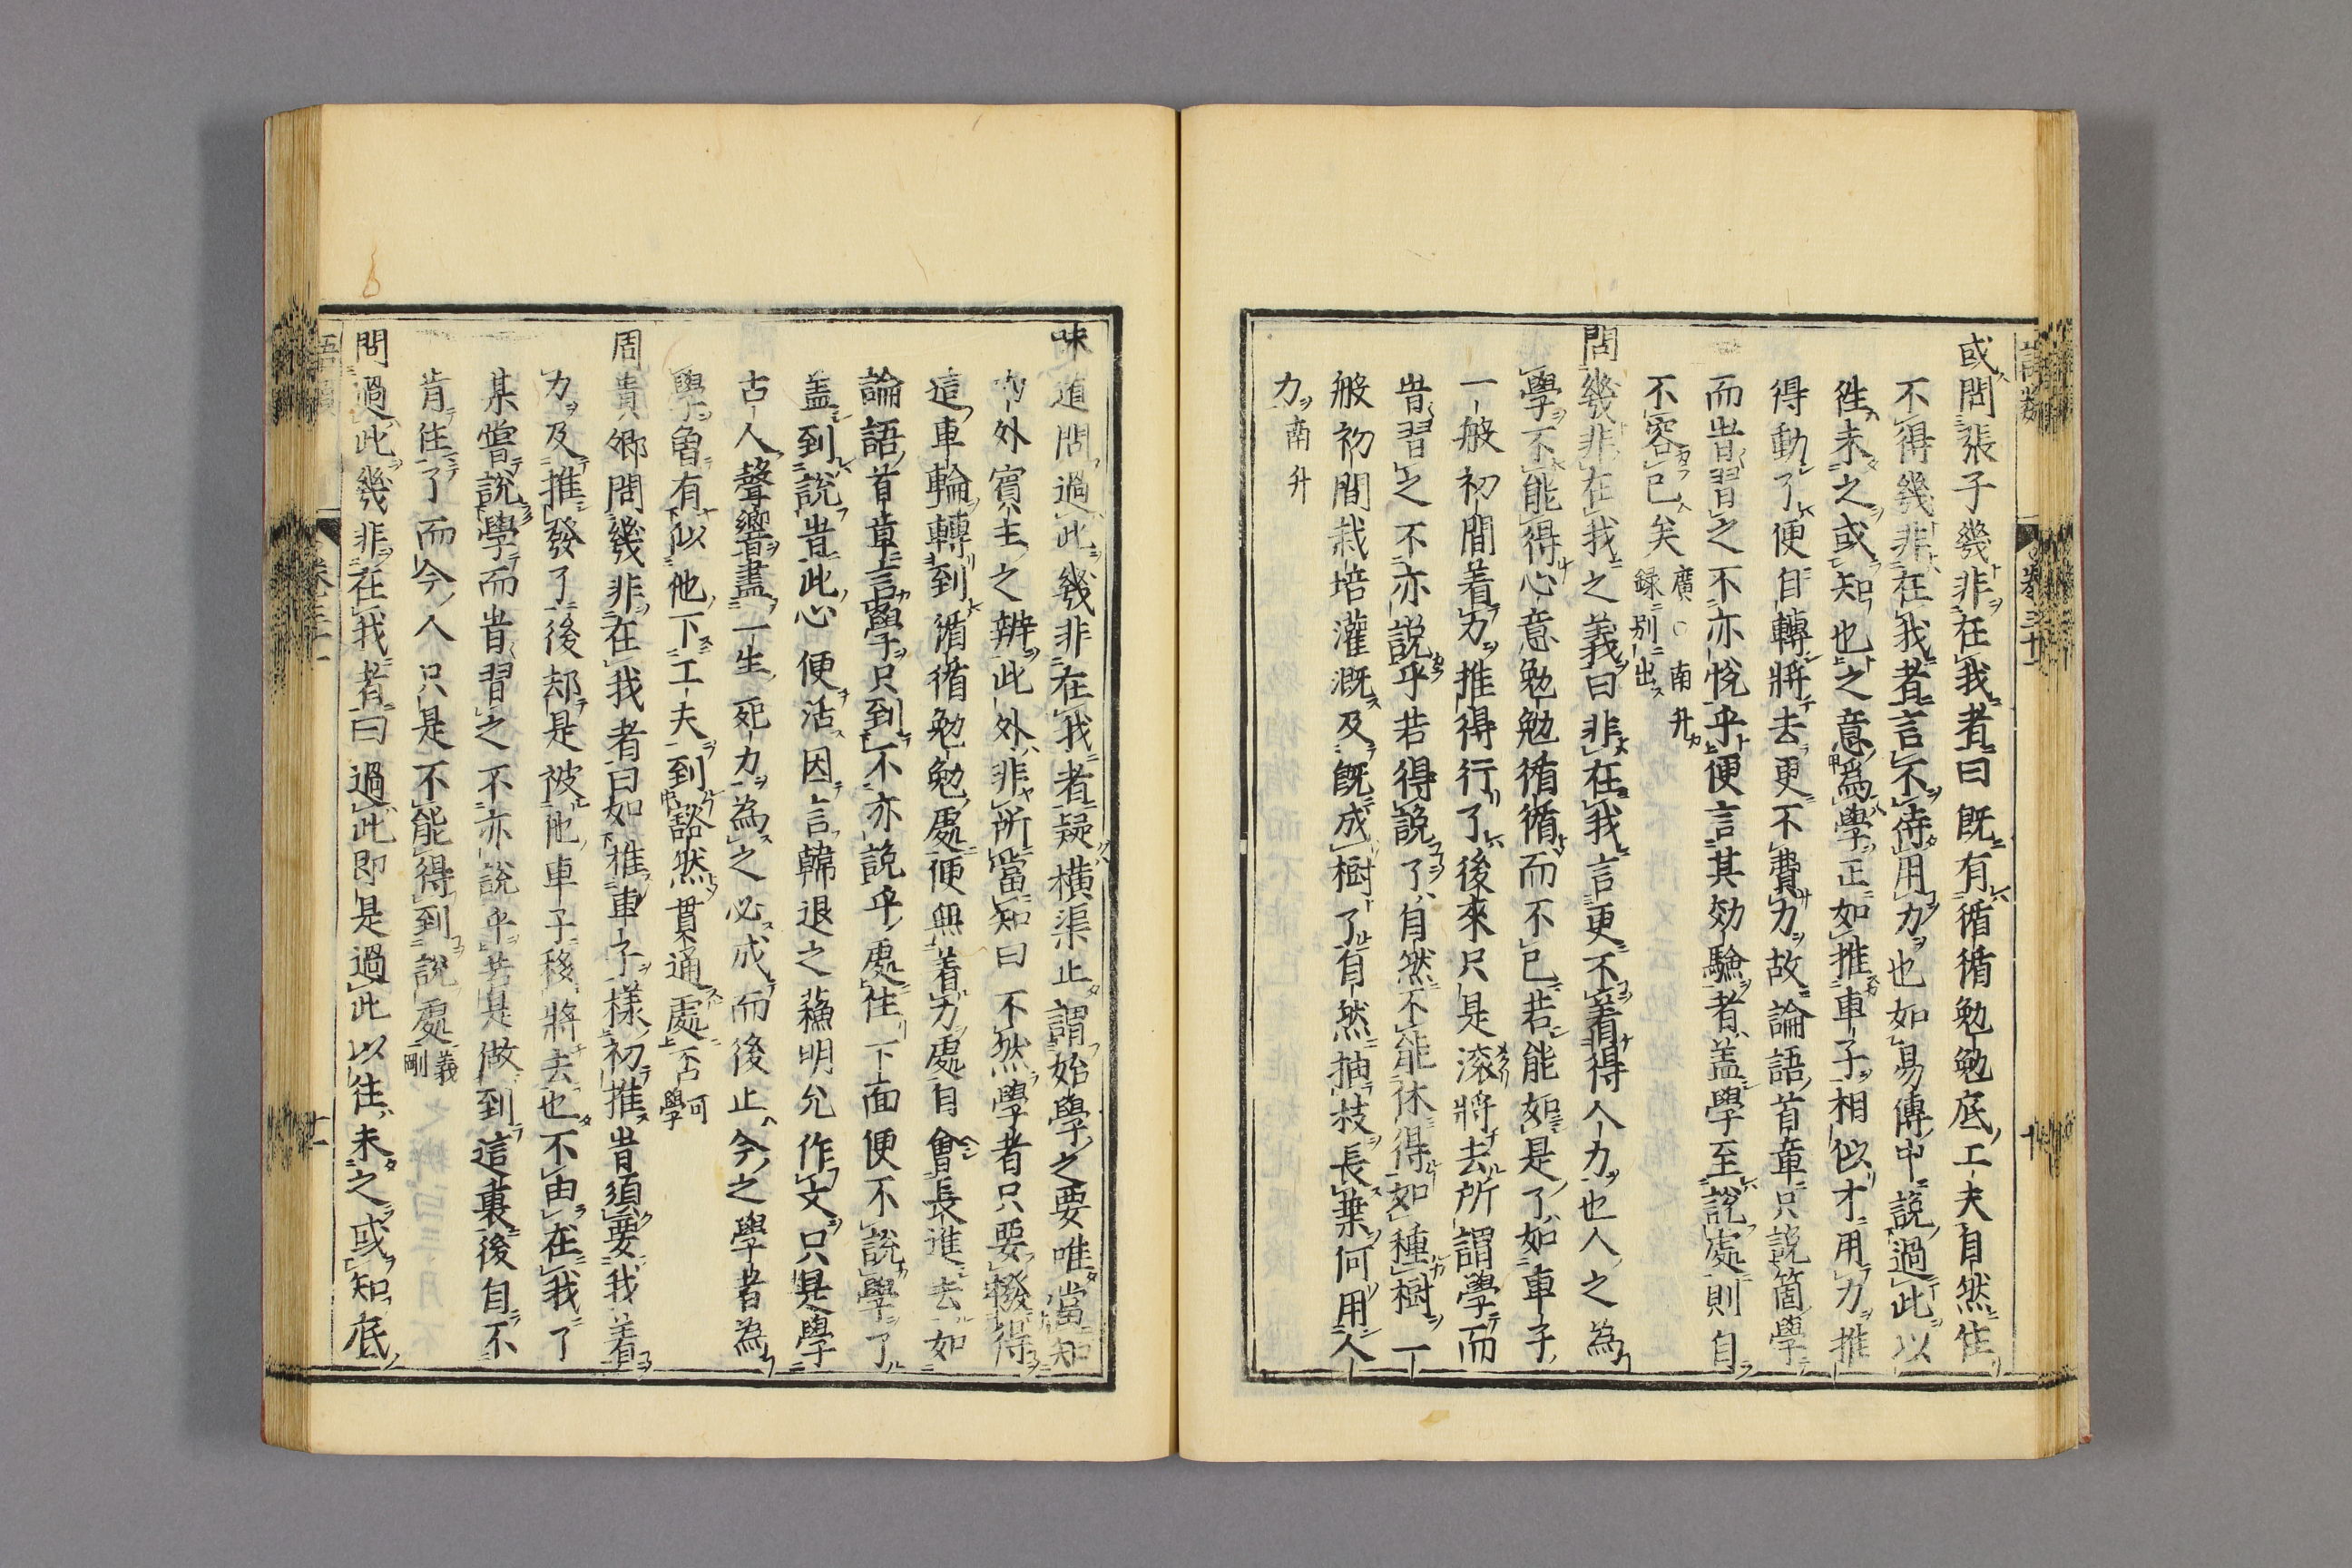 或問張子幾非在我者曰既有循循勉勉底工夫自然住
不得幾非在我者言不待用力也如易傳中說過此以
徃未之或知也之意為學正如推車子相似才用力推
得動了便自轉將去更不費力故論語首章只說箇學
而旹習之不亦悅乎便言其効驗者盖學至說處則自
不容已矣廣○南升
録別出
問幾非在我之義曰非在我言更不著得人力也人之為
學不能得心意勉勉循循而不已若能如是了如車子
一般初間着力推得行了後來只是滚將去所謂學而
旹習之不亦說乎若得說了自然不能休得如種樹一
般初間栽培灌溉及旣成樹了自然抽枝長葉何用人
力南升
語類
卷三十一
十
味道問過此幾非在我者疑橫渠止謂始學之要唯當知
內外賓主之辨此外非所當知曰不然學者只要撥得
這車輪轉到循循勉勉處便無着力處自會長進去如
論語首章言學只到不亦說乎處住下面便不說學了
盖到說旹此心便活因言韓退之蘇明允作文只是學
古人聲響盡一生死力為之必成而後止今之學者為
學曾有似他下工夫到豁然貫通處否可學
周貴卿問幾非在我者曰如推車子樣初推旹須要我着
力及推發了後却是被他車子移將去也不由在我了
某嘗說學而旹習之不亦說乎若是做到這裏後自不
肯住了而今人只是不能得到說處義剛
問過此幾非在我者曰過此即是過此以徃未之或知底
語類
卷三十一
十一